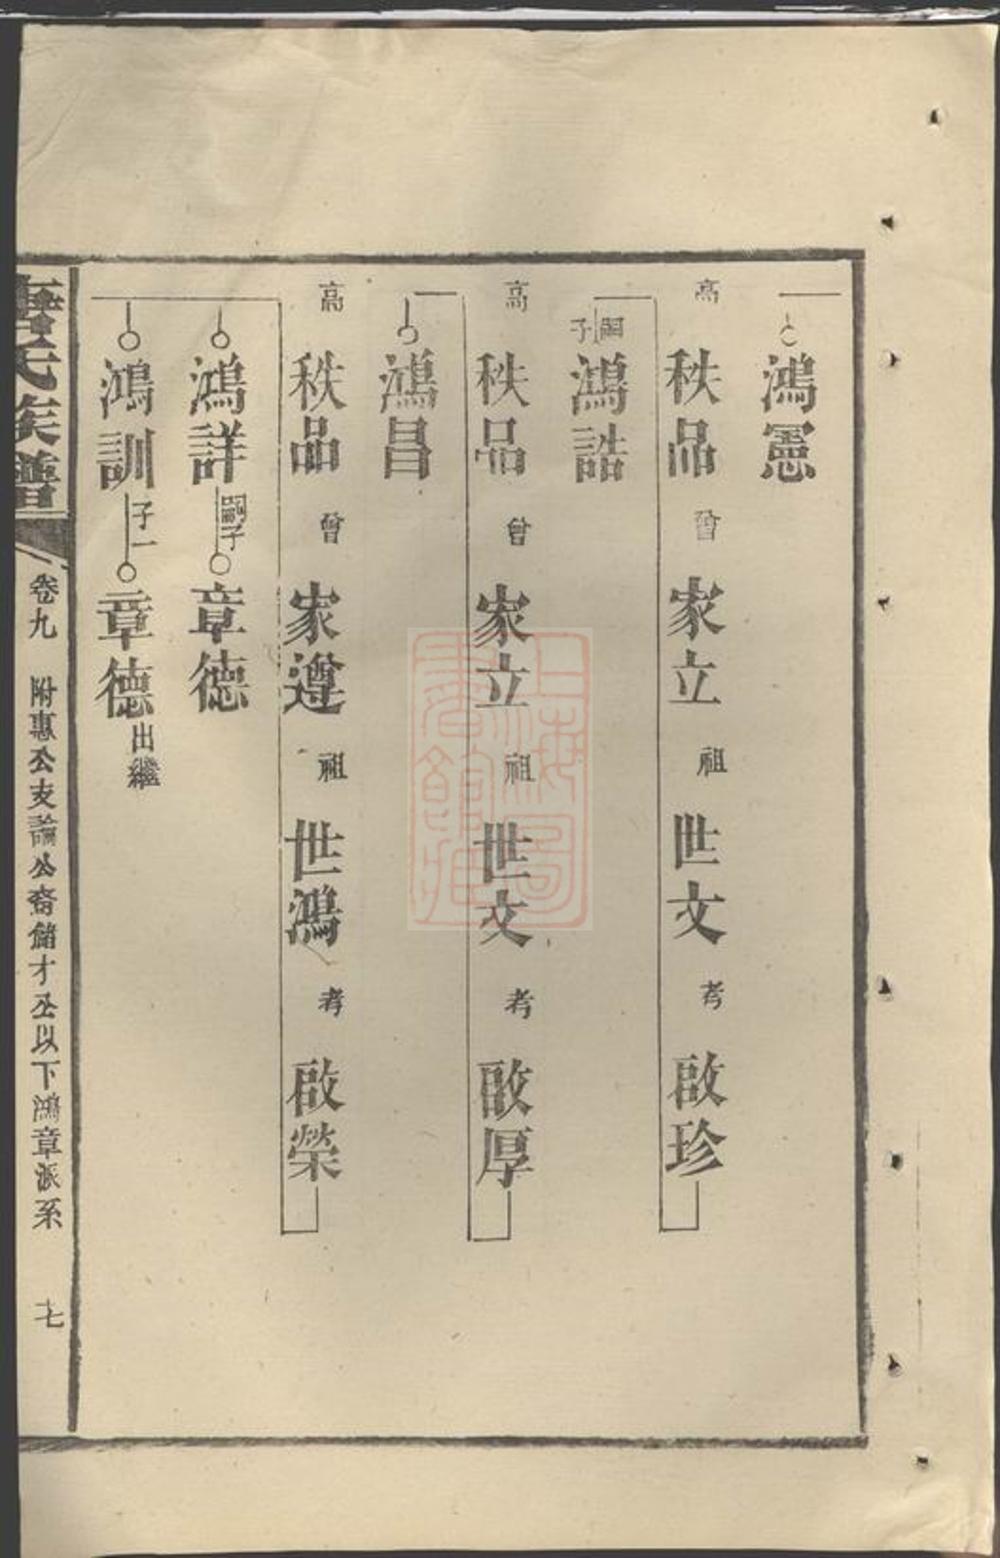 鴻憲
高 秩品 曾 家立 祖 世文 考 啟珍
嗣子 鴻誥
高 秩品 曾 家立 祖 世文 考 啟厚
鴻昌
高 秩品 曾 家遵 祖 世鴻 考 啟榮
鴻詳 嗣子 章德
鴻訓 子一 章德 出繼
氏族譜 卷九 附惠公支論公裔儲才公以下鴻章派系 七
上海圖書館藏